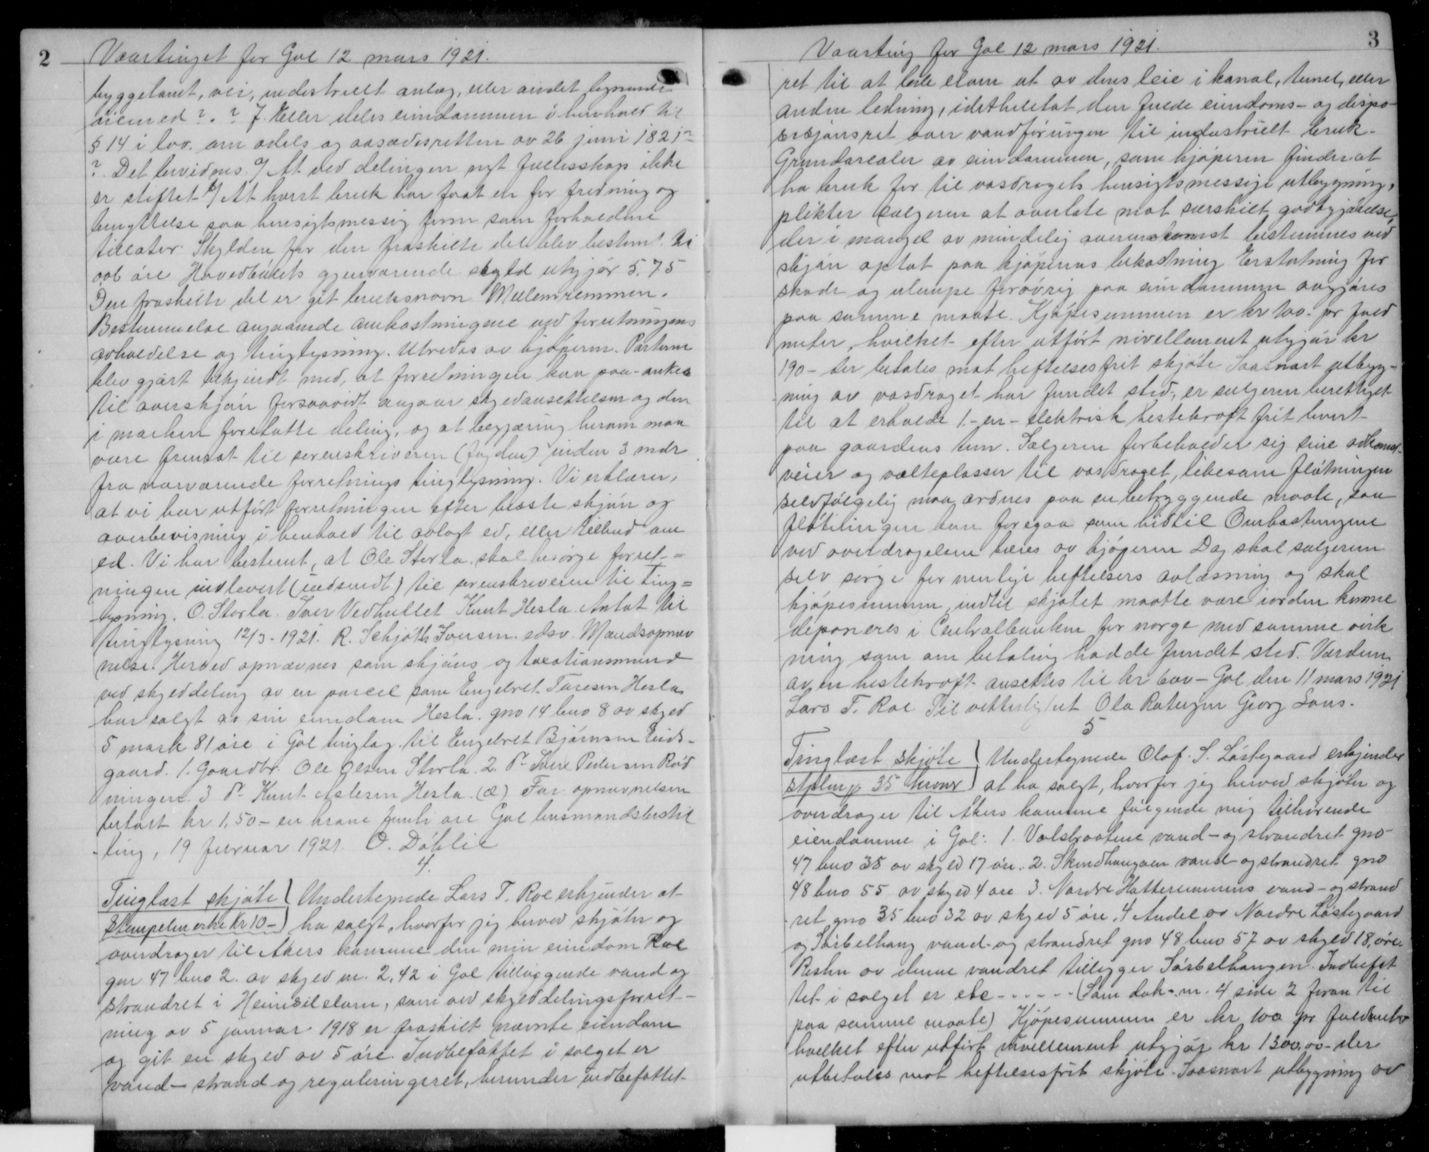 2
Vaartinget for Gol 12 mars 1921.
byggetomt, vei, industrielt anlæg, eller andet lignende
øiemed ? . ? J Heller deles eiendommen i henhold til
§ 14 i lov. om odels og aasædesretten av 26 juni 1821 ?
? Det bevidnes a/ At ved delingen nyt fællesskap ikke
er stiftet b/ At hvert bruk har faat en for fredning og
benyttelse saa hensigtsmessig form som forholdene
tillater Skylden for den fraskilte del blev bestemt til
006 øre Hovedbølets gjenværende skyld utgjør 5.75
Den fraskilte del er git bruksnavn Mellemremmen.
Bestemmelse angaaende omkostningene ved forretningens
avholdelse og tinglysning. Utredes av kjøperen. Parterne
blev gjort bekjendt med, at forretningen kan paa-ankes
til overskjøn forsaavidt angaar skyldansettelsen og den
i marken foretatte deling, og at begjæring herom maa
være fremsat til sorenskriveren (fogden) inden 3 mdr
fra nærværende forretnings tinglysning. Vi erklærer,
at vi har utført forretningen efter beste skjøn og
overbevisning i henhold til avlagt ed, eller tilbud om
ed. Vi har bestemt, at Ole Storla skal besørge forret-
ningen indlevert (indsendt) til sorenskriveren til ting=
lysning. O. Storla. Iver Vedhullet Knut Hesla. Antat til
tinglysning 12/3-1921. R. Schjøth Iversen edsv. Mandsopnæv
nelse. Herved opnævnes som skjøns og taxationsmænd
ved skylddeling av en parcel som Engebret Taresen Hesla
har solgt av sin eiendom Hesla. gno 14 bno 8 av skyld
5 mark 81 øre i Gol tinglag til Engebret Bjørnsen Eids-
gaard. 1. Gaardbr. Ole Olsen Storla. 2. do Iver Pedersen Rød
ningen 3 do Knut Aslesen Hesla. (æ) For opnævnelsen
betalt kr 1,50 - en krone femti øre Gol lensmandsbestil
ling, 19 februar 1921. O. Døhlie
4.
Tinglæst skjøte
Stempelmerke kr 10-
Undertegnede Lars T. Roe erkjender at
ha solgt, hvorfor jeg herved skjøter og
overdrager til Akers kommune den min eiendom Roe
gnr 47 bno 2. av skyld m. 2,42 i Gol tilliggende vand og
strandret i Hemsilelven, som ved skylddelingsforret-
ning av 5 januar 1918 er fraskilt nævnte eiendom
og git en skyld av 5 øre Indbefattet i salget er
vand- strand og reguleringsret, herunder indbefattet
3
Vaarting for Gol 12 mars 1921.
ret til at lede elven ut av dens leie i kanal, tunel, eller
anden ledning, idethele tat den fulde eiendoms- og dispo-
sisjonsret over vandføringen til industrielt bruk.
Grundarealer av eiendommen, som kjøperen finder at
ha bruk for til vasdragets hensigtsmessige utbygning,
plikter sælgeren at overlate mot særskilt godtgjørelse,
der i mangel av mindelig overenskomst bestemmes ved
skjøn optat paa kjøperens bekostning Erstatning for
skade og ulempe forøvrig paa eiendommen avgjøres
paa samme maate. Kjøpesummen er kr 100.- pr fald
meter, hvilket efter utført nivellement utgjør kr
190- der betales mot heftelsesfrit skjøte Saasnart utbyg-
ning av vasdraget har fundet sted, er sælgeren berettiget
til at erholde 1 - en - elektrisk hestekraft frit levert
paa gaardens tun. Sælgeren forbeholder sig sine
veier og vælteplasser til vasdraget, likesom fløtningen
selvfølgelig maa ordnes paa en betryggende maate, saa
fløtningen kan foregaa som hidtil Omkostningene
ved overdragelsen bæres av kjøperen Dog skal sælgeren
selv sørge for mulige heftelsers avlæsning og skal
kjøpesummen, indtil skjøtet maatte være i orden kunne
deponeres i Centralbanken for norge med samme virk
ning som om betaling hadde fundet sted. Værdien
av en hestekraft ansettes til kr 600 - Gol den 11 mars 1921
Lars T. Roe Til vitterlighet Ola Rotegen Georg Lons.
5
Tinglæst skjøte
stplmrk 35 kroner
Undertegnede Olaf. S. Løstegaard erkjender
at ha solgt, hvorfor jeg herved skjøter og
overdrager til Akers kommune følgende mig tilhørende
eiendomme i Gol: 1. vand- og strandret gno
47 bno 35 av skyld 17 øre. 2. Skindhaugen vand- og strandret gno
48 bno 55 av skyld 4 øre 3. Nordre Hatteremmens vand- og strand
ret gno 35 bno 32 av skyld 5 øre, 4 Andel av Nordre Løstegaard
og Sørbelhaug vand- og strandret gno 48 bno 57 av skyld 18 øre
Resten av denne vandret tilligger Sørbelhaugen. Indbefat
tet i salget er etc - - - - - (Som dok. nr. 4 side 2 foran til
paa samme maate) Kjøpesummen er kr 100 pr faldmeter
hvilket efter utført nivellement utgjør kr 1300,00 - der
utbetales mot heftelsesfrit skjøte. Saasnart utbygning av